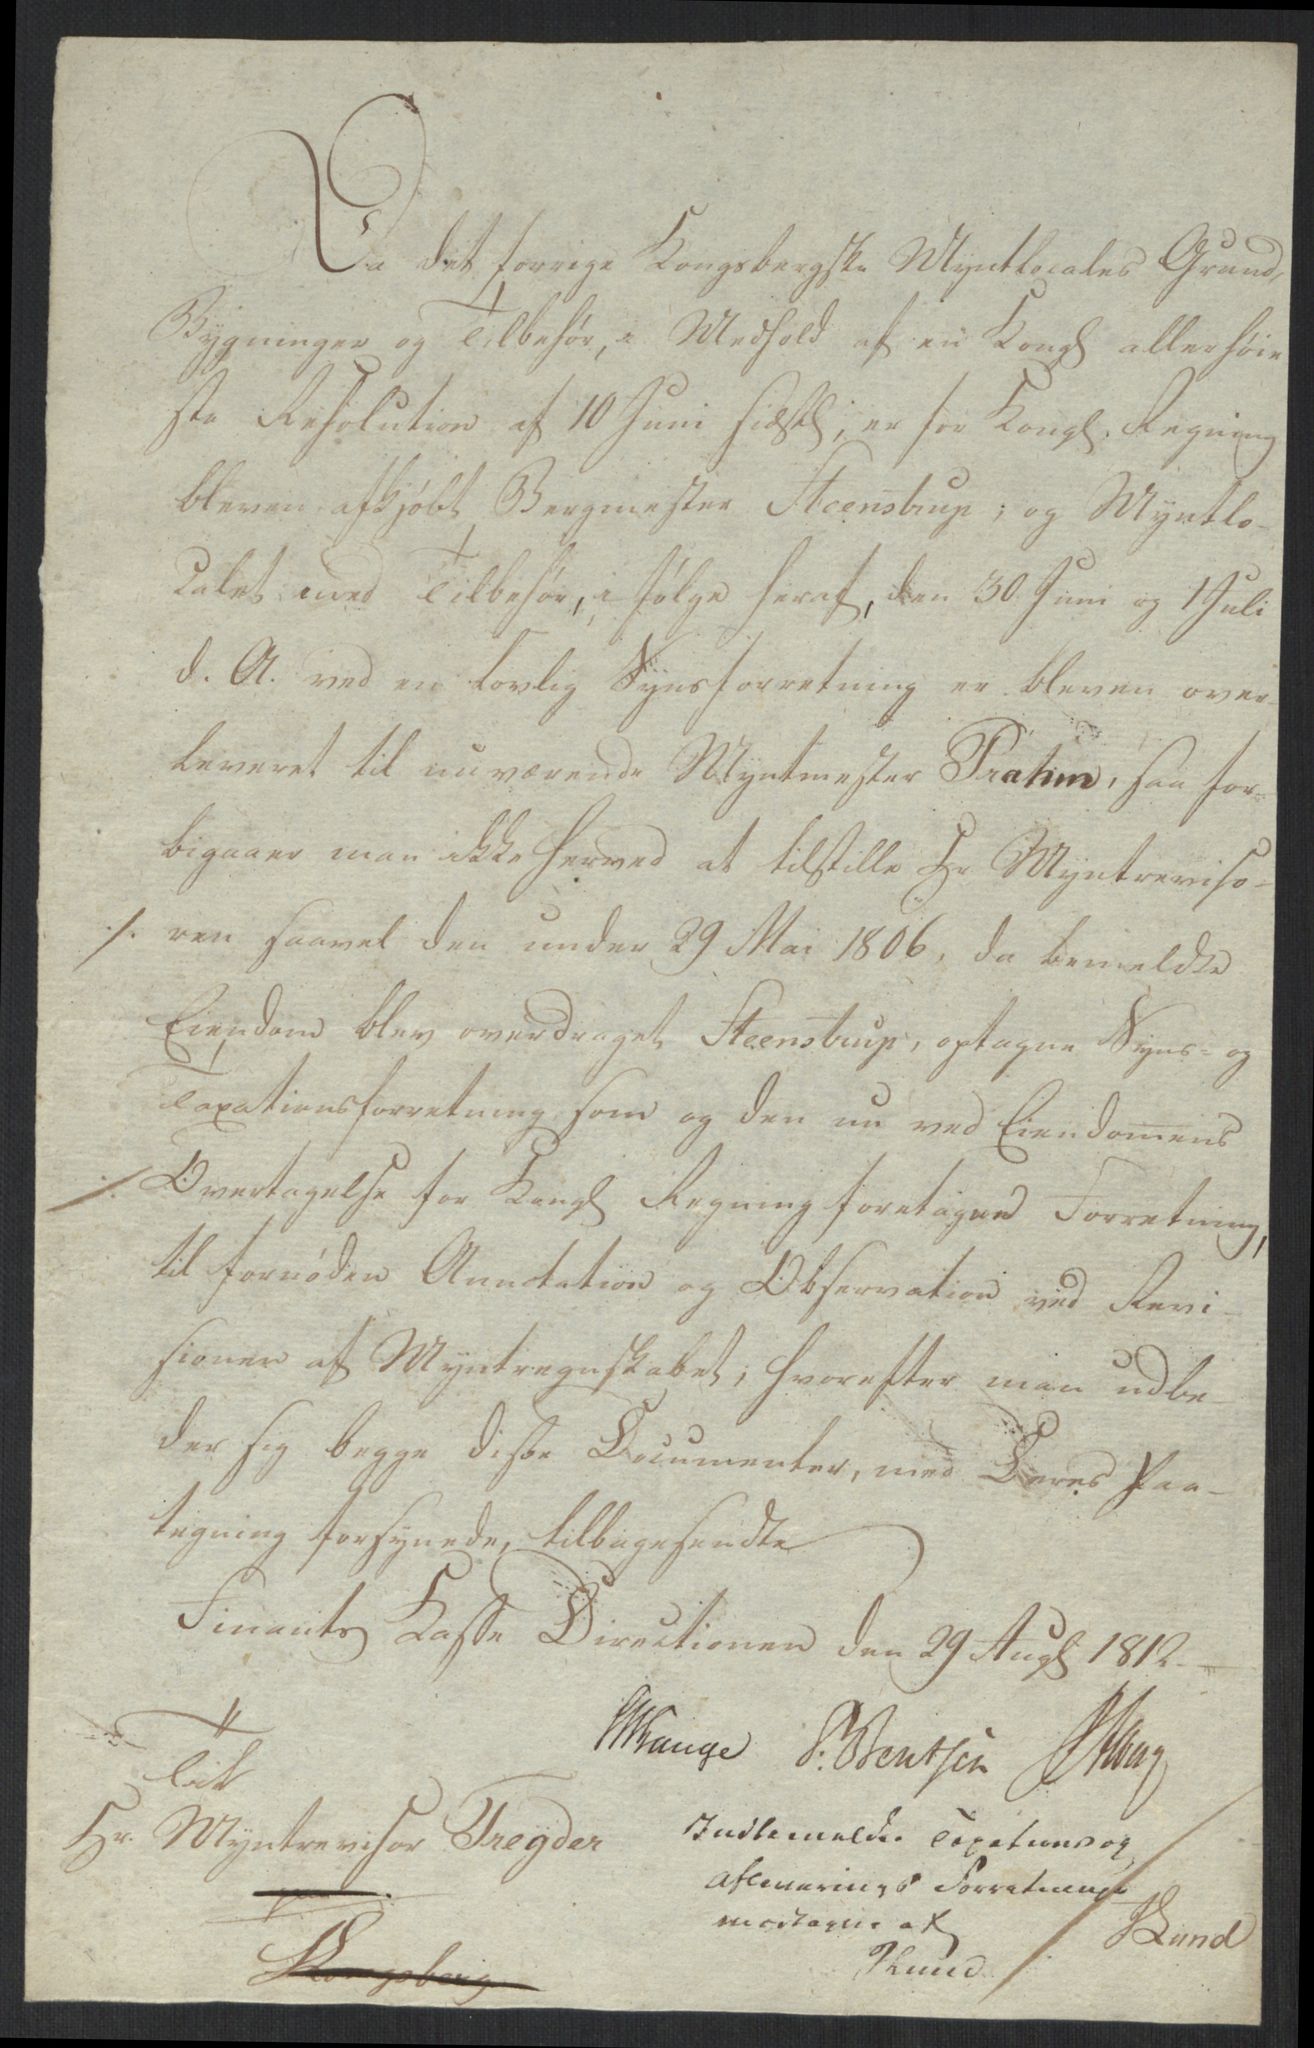 Da det forrige Kongsbergske Myntlocales Grund,
Bygninger og Tilbehør, i Medhold af en Kongl allerhøie
ste Resolution af 10 Juni sidstl, er for Kongl. Regning
bleven afkjøbt Bergmester Steenstrup; og Myntlo-
calet med Tilbehør, i følge heraf, den 30 Juni og 1 Juli
d. A. ved en lovlig Synsforretning er bleven over-
leveret til nuværende Myntmester Prahm, saa for-
bigaaer man ikke herved at tilstille Hr Myntreviso-
./. ren saavel den under 29 Mai 1806, da bemeldte
Eiendom blev overdraget Steenstrup, optagne Syns- og
Taxationsforretning som og den nu ved Eiendomens
./. Overtagelse for Kongl Regning foretagne Forretning,
til fornøden Annotation og Observation ved Revi-
sionen af Myntregnskabet, hvorefter man udbe-
der sig begge disse Documenter, med Deres Paa-
tegning forsynede, tilbagesendte
Finants Kasse Directionen den 29 Augl 1812.
P. Wentsen
Til
Hr. Myntrevisor Tregder
Indbemeldte Taxations og
Afleverings Forretninger
modtagne af
Lund
Lund
Kongsberg